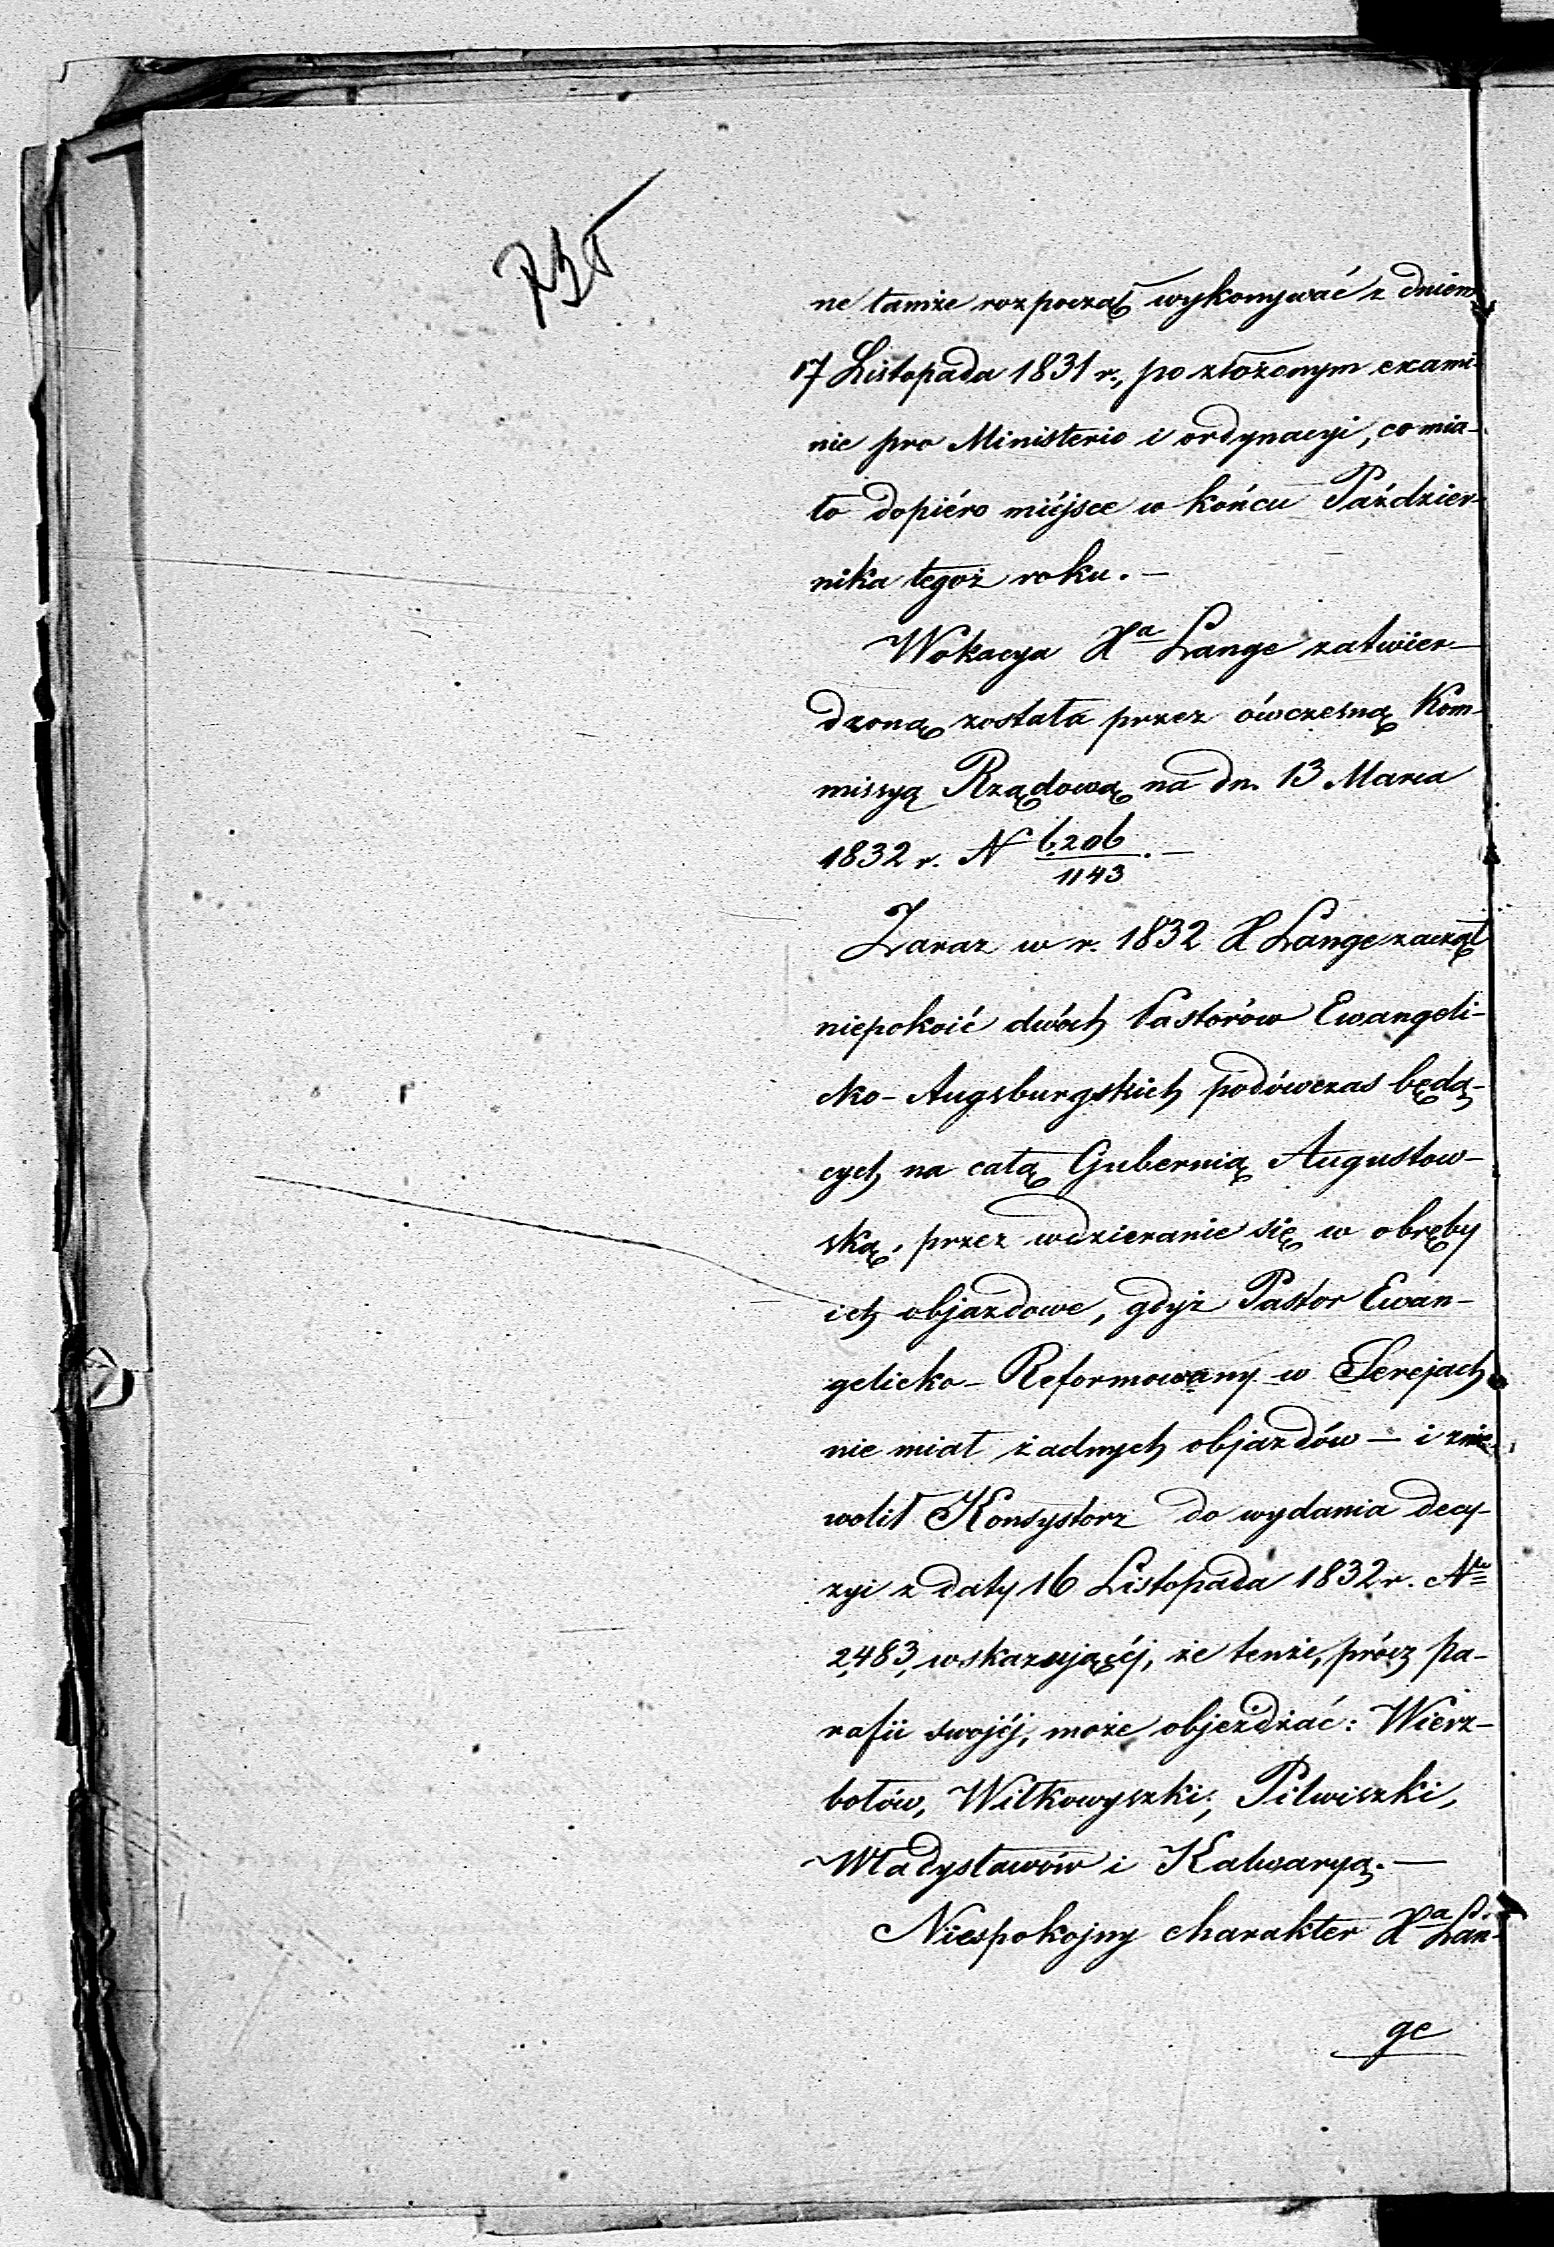 ne tamże rozpoczął wykonywać z dniem
17 Listopada 1831 r., po złożonym exami-
nie pro Ministerio i ordynacyi, co mia-
ło dopiéro miéjsce w końcu Paździer-
nika tegoż roku. —
Wokacya Xa Lange zatwier-
dzoną została przez ówczesną Kom-
missyą Rządową na dn. 13 Marca
1832 r. N 6,206/1143. —
Zaraz w r. 1832 X Lange zaczął
niepokoić dwóch Pastorów Ewangeli-
cko-Augsburgskich podówczas będą-
cych na całą Gubernią Augustow-
ską, przez wdzieranie się w obręby
ich objazdowe, gdyż Pastor Ewan-
gelicko-Reformowany w Serejach
nie miał żadnych objazdów — i znie-
wolił Konsystorz do wydania decy-
zyi z daty 16 Listopada 1832 r. Nr
2,483, wskazującéj, że tenże, prócz pa-
rafii swojéj, może objeżdżać: Wierz-
bołów, Wiłkowyszki, Pilwiszki,
Władysławów i Kalwaryą. —
Niespokojny charakter Xa Lan-
ge